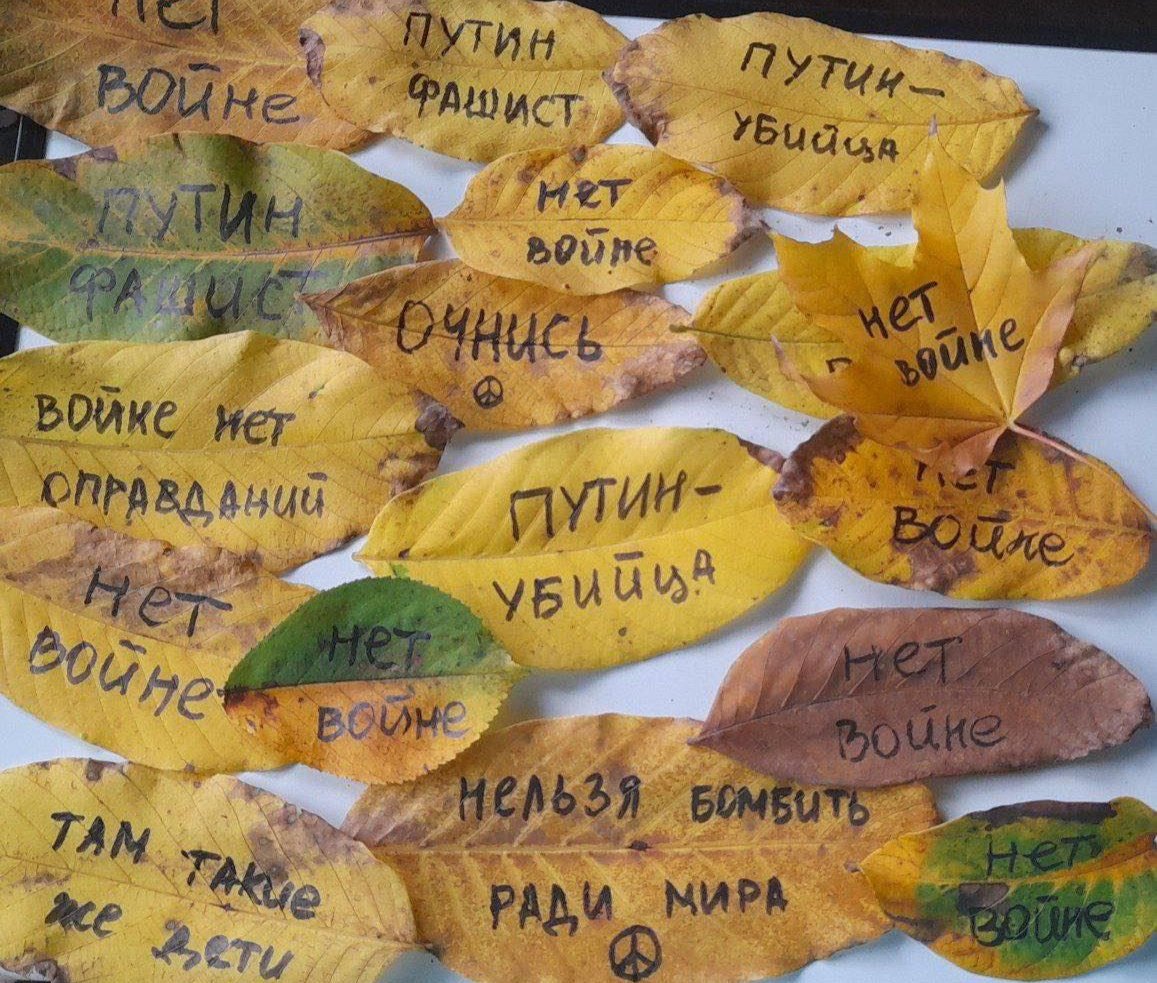 НЕТ
ВОЙНЕ
ПУТИН
ФАШИСТ
ПУТИН–
УБИЙЦА
ПУТИН
ФАШИСТ
НЕТ
ВОЙНЕ
ОЧНИСЬ
НЕТ
ВОЙНЕ
ВОЙНЕ НЕТ
ОПРАВДАНИЙ
ПУТИН–
УБИЙЦА
НЕТ
ВОЙНЕ
НЕТ
ВОЙНЕ
НЕТ
ВОЙНЕ
НЕТ
ВОЙНЕ
НЕЛЬЗЯ БОМБИТЬ
РАДИ МИРА
ТАМ ТАКИЕ
ЖЕ ДЕТИ
НЕТ
ВОЙНЕ